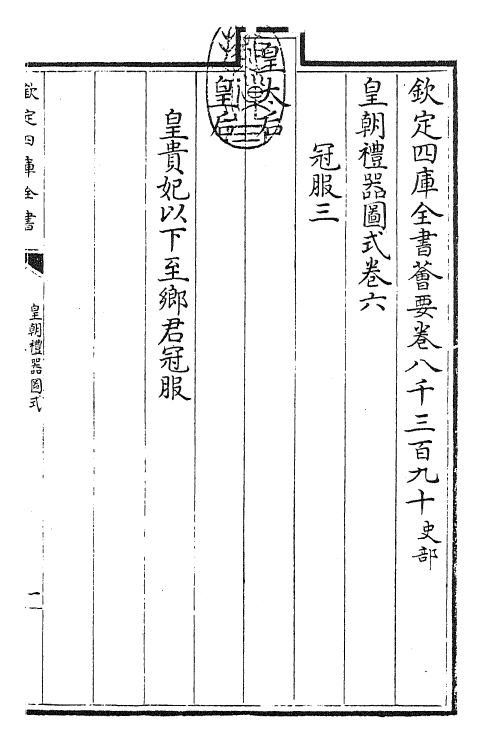 欽定四庫全書薈要卷八千三百九十史部
皇朝禮器圖式卷六
冠服三
皇太后
皇后
皇貴妃以下至鄉君冠服
欽定四庫全書
皇朝禮器圖式
一